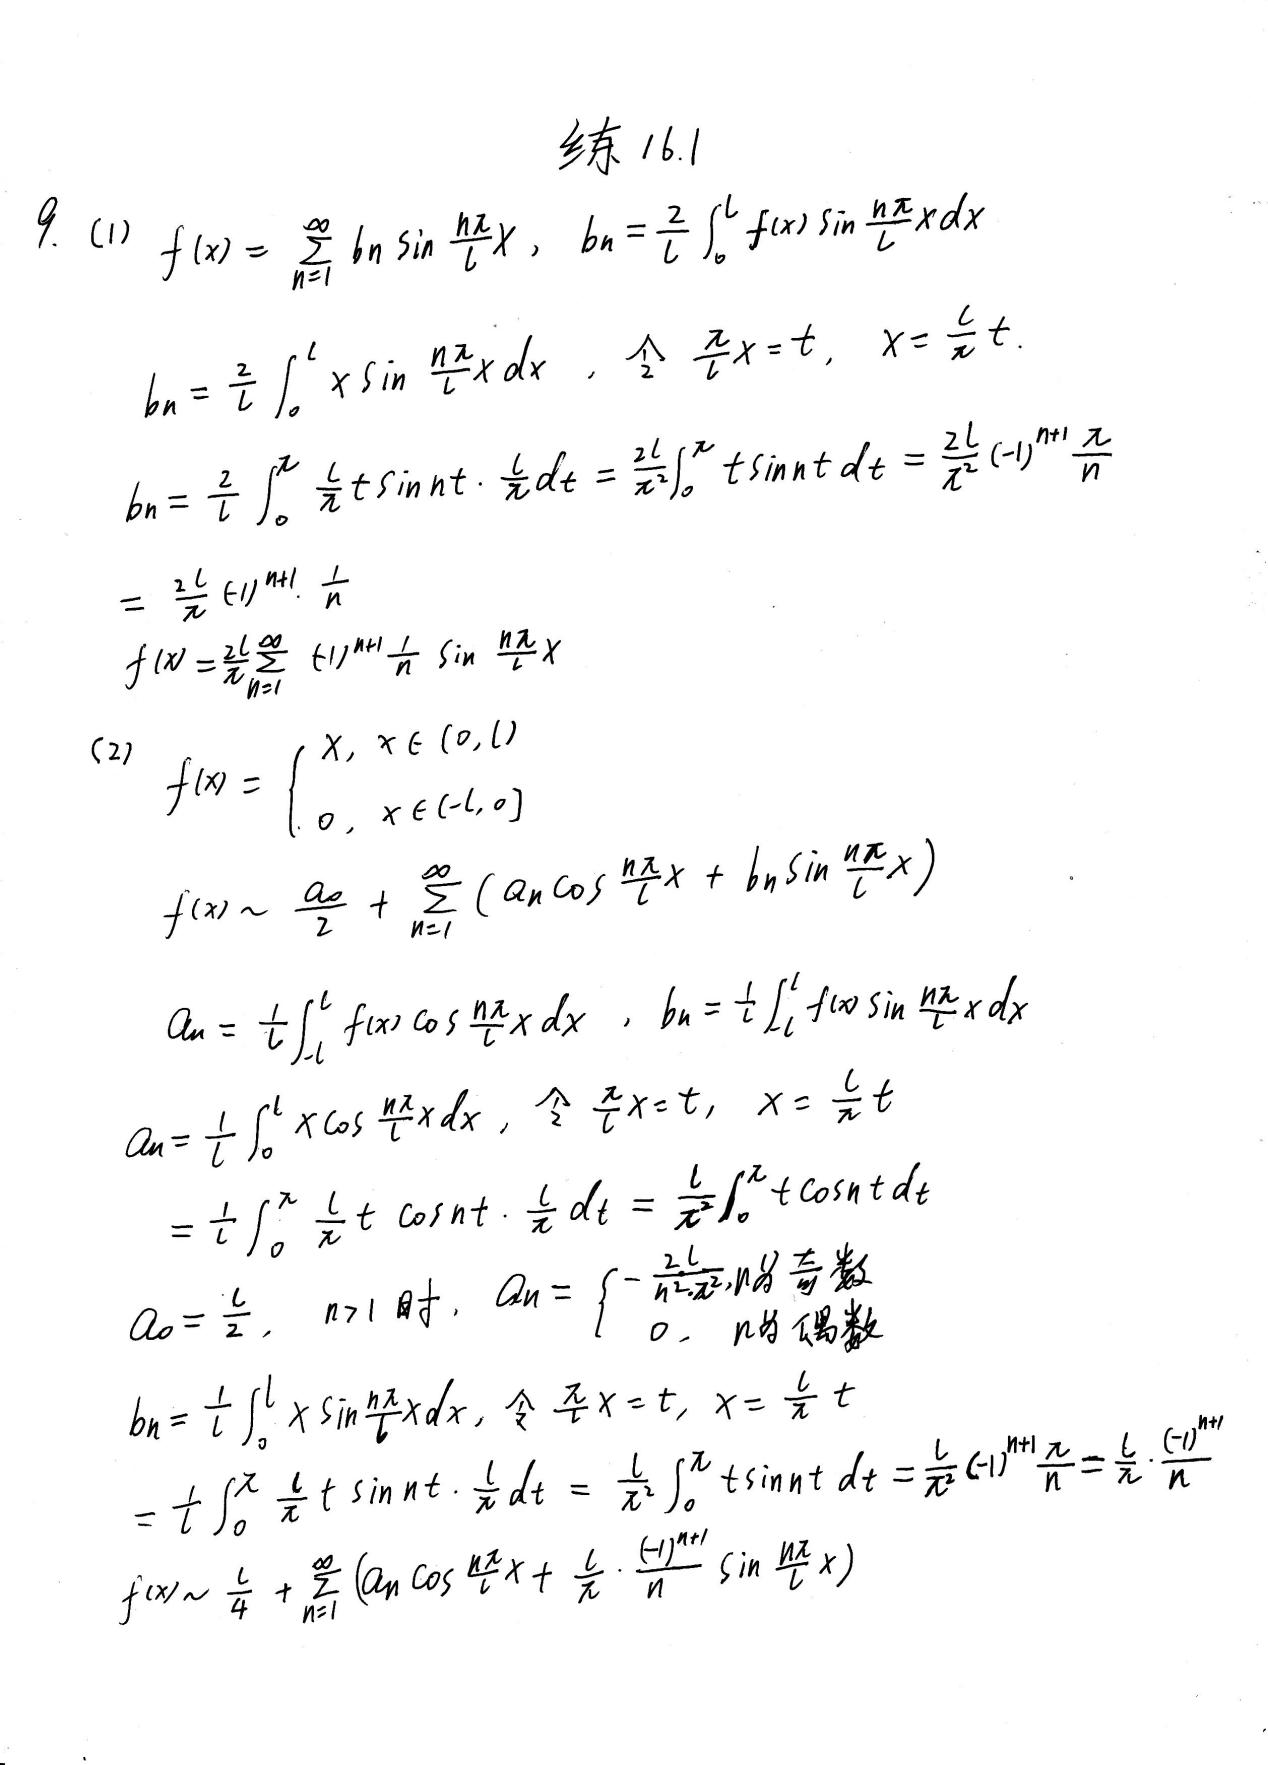 练 16.1
9. (1) f(x) = ∑_{n=1}^{∞} bn sin \frac{nπ}{l}x, bn = \frac{2}{l} ∫_0^l f(x) sin \frac{nπ}{l}x dx
bn = \frac{2}{l} ∫_0^l x sin \frac{nπ}{l}x dx, 令 \frac{π}{l}x = t, x = \frac{l}{π}t.
bn = \frac{2}{l} ∫_0^π \frac{l}{π}t sin nt · \frac{l}{π}dt = \frac{2l}{π²} ∫_0^π t sin nt dt = \frac{2l}{π²} (-1)^{n+1} \frac{π}{n}
= \frac{2l}{π} (-1)^{n+1} · \frac{1}{n}
f(x) = \frac{2l}{π} ∑_{n=1}^{∞} (-1)^{n+1} \frac{1}{n} sin \frac{nπ}{l}x
(2) f(x) = { x, x∈(0,l)
0, x∈(-l,0]
f(x) ~ \frac{a_0}{2} + ∑_{n=1}^{∞} (an cos \frac{nπ}{l}x + bn sin \frac{nπ}{l}x)
an = \frac{1}{l} ∫_{-l}^l f(x) cos \frac{nπ}{l}x dx, bn = \frac{1}{l} ∫_{-l}^l f(x) sin \frac{nπ}{l}x dx
an = \frac{1}{l} ∫_0^l x cos \frac{nπ}{l}x dx, 令 \frac{π}{l}x = t, x = \frac{l}{π}t
= \frac{1}{l} ∫_0^π \frac{l}{π}t cos nt · \frac{l}{π}dt = \frac{l}{π²} ∫_0^π t cos nt dt
a_0 = \frac{l}{2}, n>1时, an = { -\frac{2l}{n²·π²}, n为奇数
0, n为偶数
bn = \frac{1}{l} ∫_0^l x sin \frac{nπ}{l}x dx, 令 \frac{π}{l}x = t, x = \frac{l}{π}t
= \frac{1}{l} ∫_0^π \frac{l}{π}t sin nt · \frac{l}{π}dt = \frac{l}{π²} ∫_0^π t sin nt dt = \frac{l}{π²} (-1)^{n+1} \frac{π}{n} = \frac{l}{π} · \frac{(-1)^{n+1}}{n}
f(x) ~ \frac{l}{4} + ∑_{n=1}^{∞} (an cos \frac{nπ}{l}x + \frac{l}{π} · \frac{(-1)^{n+1}}{n} sin \frac{nπ}{l}x)